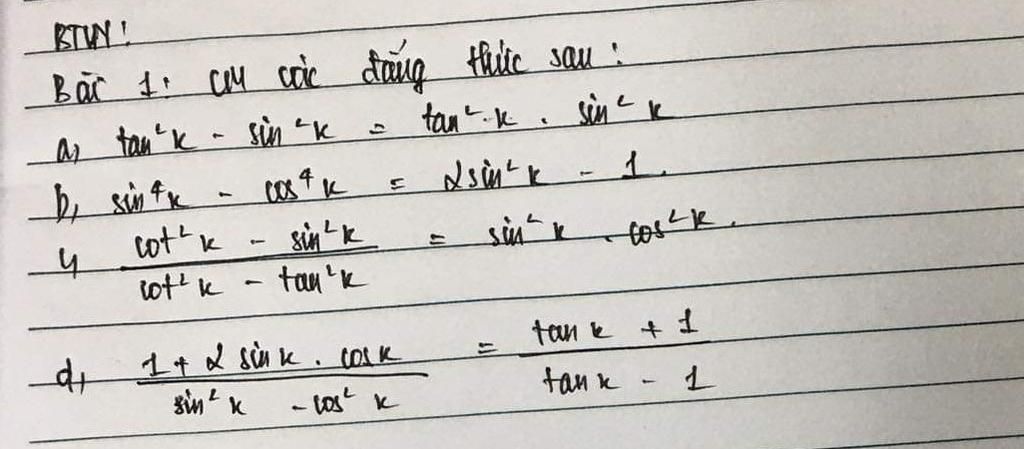 BTVN!
Bài 1: CM các đẳng thức sau:
a, tan²x - sin²x = tan²x . sin²x
b, sin⁴x - cos⁴x = 2sin²x - 1.
c, (cot²x - sin²x)/(cot²x - tan²x) = sin²x . cos²x.
d, (1 + 2 sinx . cosx)/(sin²x - cos²x) = (tanx + 1)/(tanx - 1)